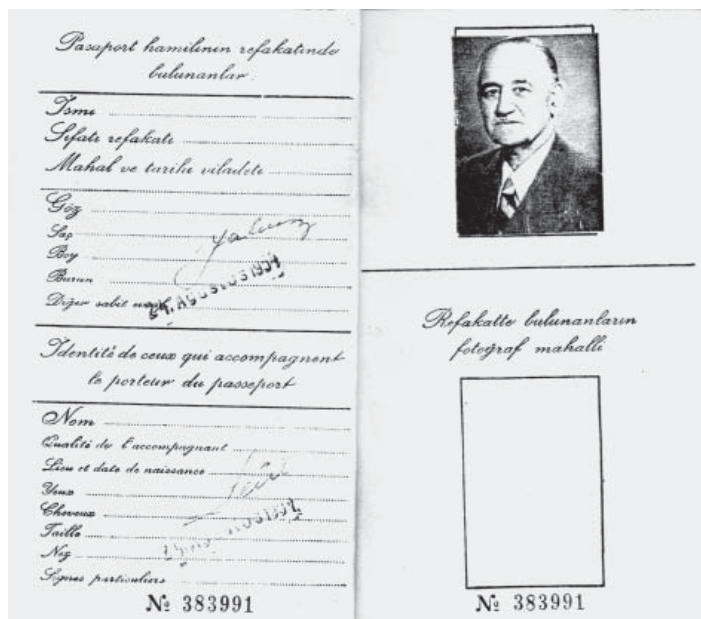 Pasaport hamilinin refakatinde
bulunanlar :
İsmi
Sıfatı refakati
Mahal ve tarihi viladeti
Göz
Saç
Boy
Burun
Diğer sabit
24. AĞUSTOS 1951
Identité de ceux qui accompagnent
le porteur du passeport
Nom
Qualité de l'accompagnant
Lieu et date de naissance
Yeux
Cheveux
Taille
Nez
Signes particuliers
№ 383991
Refakatte bulunanların
fotoğraf mahalli
№ 383991